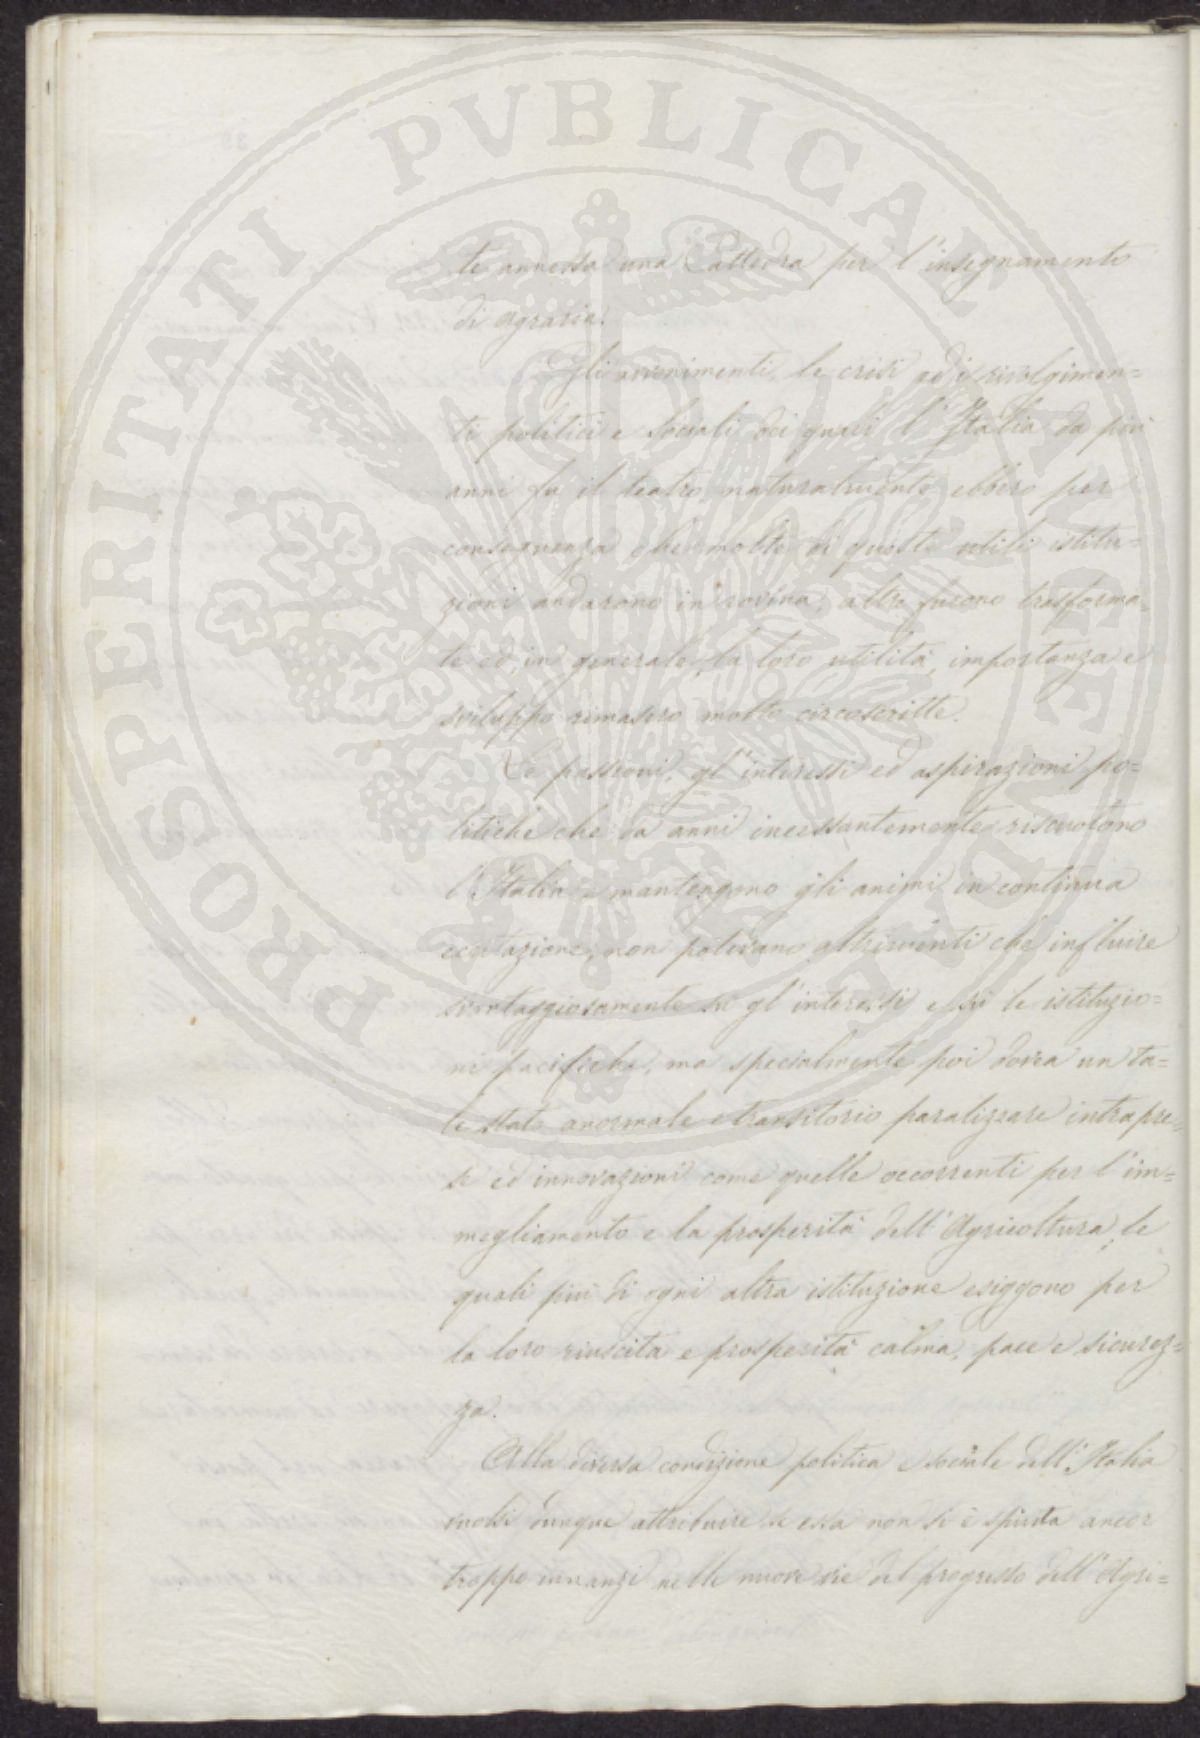 te annessa una Cattedra per l'insegnamento
di agraria.
Gli avvenimenti, le crisi ed i rivolgimen=
ti politici e sociali dei quali l'Italia da più
anni fu il teatro naturalmente ebbero per
conseguenza che molte di queste utili istitu=
zioni andarono in rovina, altre furono trasforma=
te ed, in generale, la loro utilità, importanza e
sviluppo rimasero molto circoscritte.
Le passioni, gl'interessi ed aspirazioni po=
litiche che da anni incessantemente riscuotono
l'Italia e mantengono gli animi in continua
eccitazione, non potevano altrimenti che influire
svantaggiosamente su gl'interessi e su le istituzio=
ni pacifiche, ma specialmente poi dovea un ta=
le stato anormale e transitorio paralizzare intrapre=
se ed innovazioni come quelle occorrenti per l'im=
megliamento e la prosperità dell'Agricoltura, le
quali più di ogni altra istituzione esiggono per
la loro riuscita e prosperità calma, pace e sicurez=
za.
Alla diversa condizione politica e sociale dell'Italia
vuolsi dunque attribuire se essa non si è spinta ancor
troppo innanzi nelle nuove vie del progresso dell'Agri=
PROSPERITATI PVBLICAE AVGENDAE